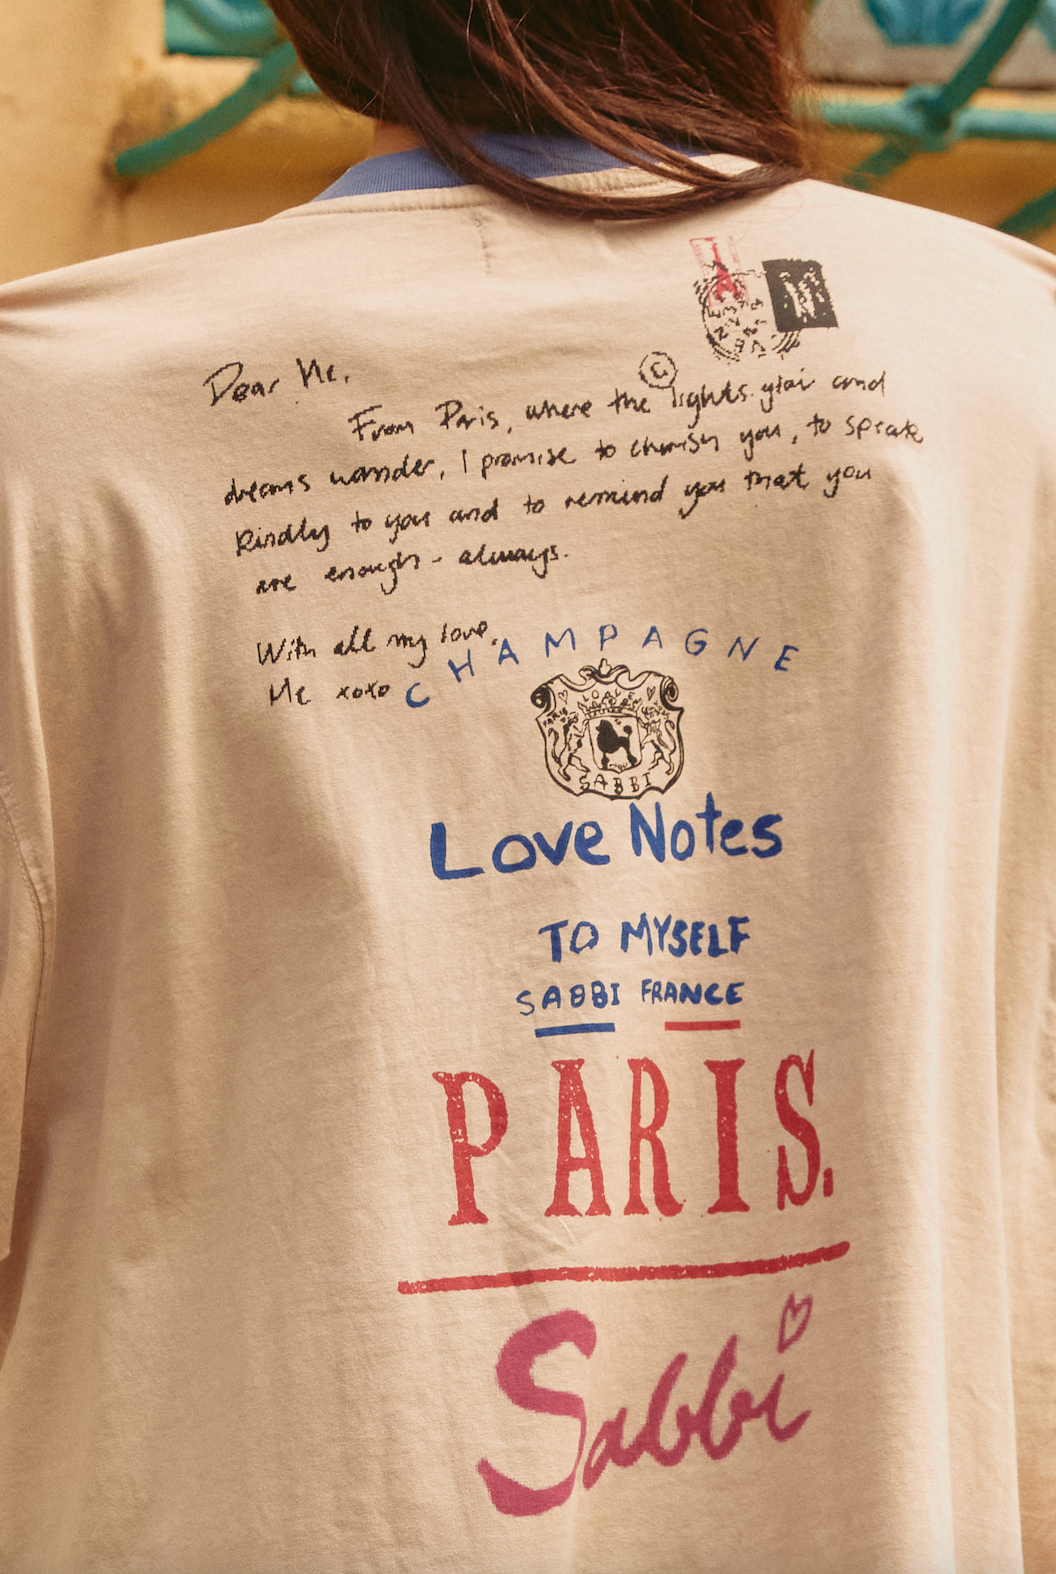 Dear Me,
©
From Paris, where the lights glow and
dreams wander, I promise to cherish you, to speak
kindly to you and to remind you that you
are enough - always.
With all my love,
Me xoxo
CHAMPAGNE
SABBI
Love Notes
TO MYSELF
SABBI FRANCE
PARIS.
Sabbi